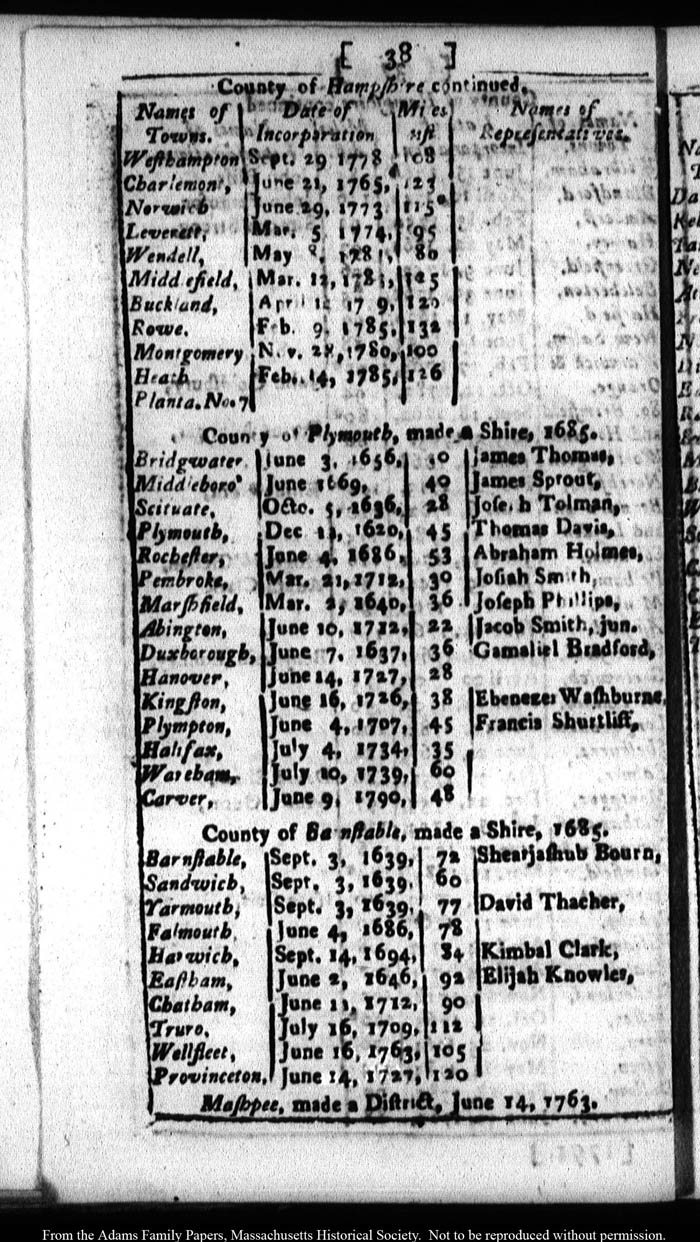 [ 38 ]
County of Hampſhire continued.
Names of Towns. | Date of Incorporation | Miles diſt | Names of Repreſentatives.
Weſthampton | Sept. 29 1778 | 108
Charlemont, | June 21, 1765, | 123
Norwich | June 29, 1773 | 115
Leverett, | Mar. 5 1774, | 95
Wendell, | May 8, 1781, | 80
Middlefield, | Mar. 12, 1783,
Buckland, | April
Rowe. | Feb. 9. 1785. | 132
Montgomery | Nov. 28, 1780, | 100
Heath | Feb. 14, 1785, | 126
Planta. No. 7
County of Plymouth, made a Shire, 1685.
Bridgwater | June 3, 1656, | 30 | James Thomas,
Middleboro' | June 1669, | 40 | James Sprout,
Scituate, | Octo. 5, 1636, | 28 | Joſeph Tolman,
Plymouth, | Dec 11, 1620, | 45 | Thomas Davis,
Rocheſter, | June 4, 1686, | 53 | Abraham Holmes,
Pembroke, | Mar. 21, 1712, | 30 | Joſiah Smith,
Marſhfield, | Mar. 2, 1640, | 36 | Joſeph Phillips,
Abington, | June 10, 1712, | 22 | Jacob Smith, jun.
Duxborough, | June 7. 1637, | 36 | Gamaliel Bradford,
Hanover, | June 14, 1727, | 28
Kingſton, | June 16, 1726, | 38 | Ebenezer Waſhburne,
Plympton, | June 4, 1707, | 45 | Francis Shurtliff,
Halifax, | July 4, 1734, | 35
Wareham, | July 10, 1739, | 60
Carver, | June 9, 1790, | 48
County of Barnſtable, made a Shire, 1685.
Barnſtable, | Sept. 3, 1639, | 72 | Shearjaſhub Bourn,
Sandwich, | Sept. 3, 1639. | 60
Yarmouth, | Sept. 3, 1639. | 77 | David Thacher,
Falmouth | June 4, 1686, | 78
Harwich, | Sept. 14, 1694, | 84 | Kimbal Clark,
Eaſtham, | June 2, 1646, | 92 | Elijah Knowles,
Chatham, | June 11, 1712, | 90
Truro, | July 16, 1709, | 112
Wellfleet, | June 16, 1763, | 105
Provinceton, | June 14, 1727, | 120
Maſhpee, made a Diſtrict, June 14, 1763.
From the Adams Family Papers, Massachusetts Historical Society. Not to be reproduced without permission.